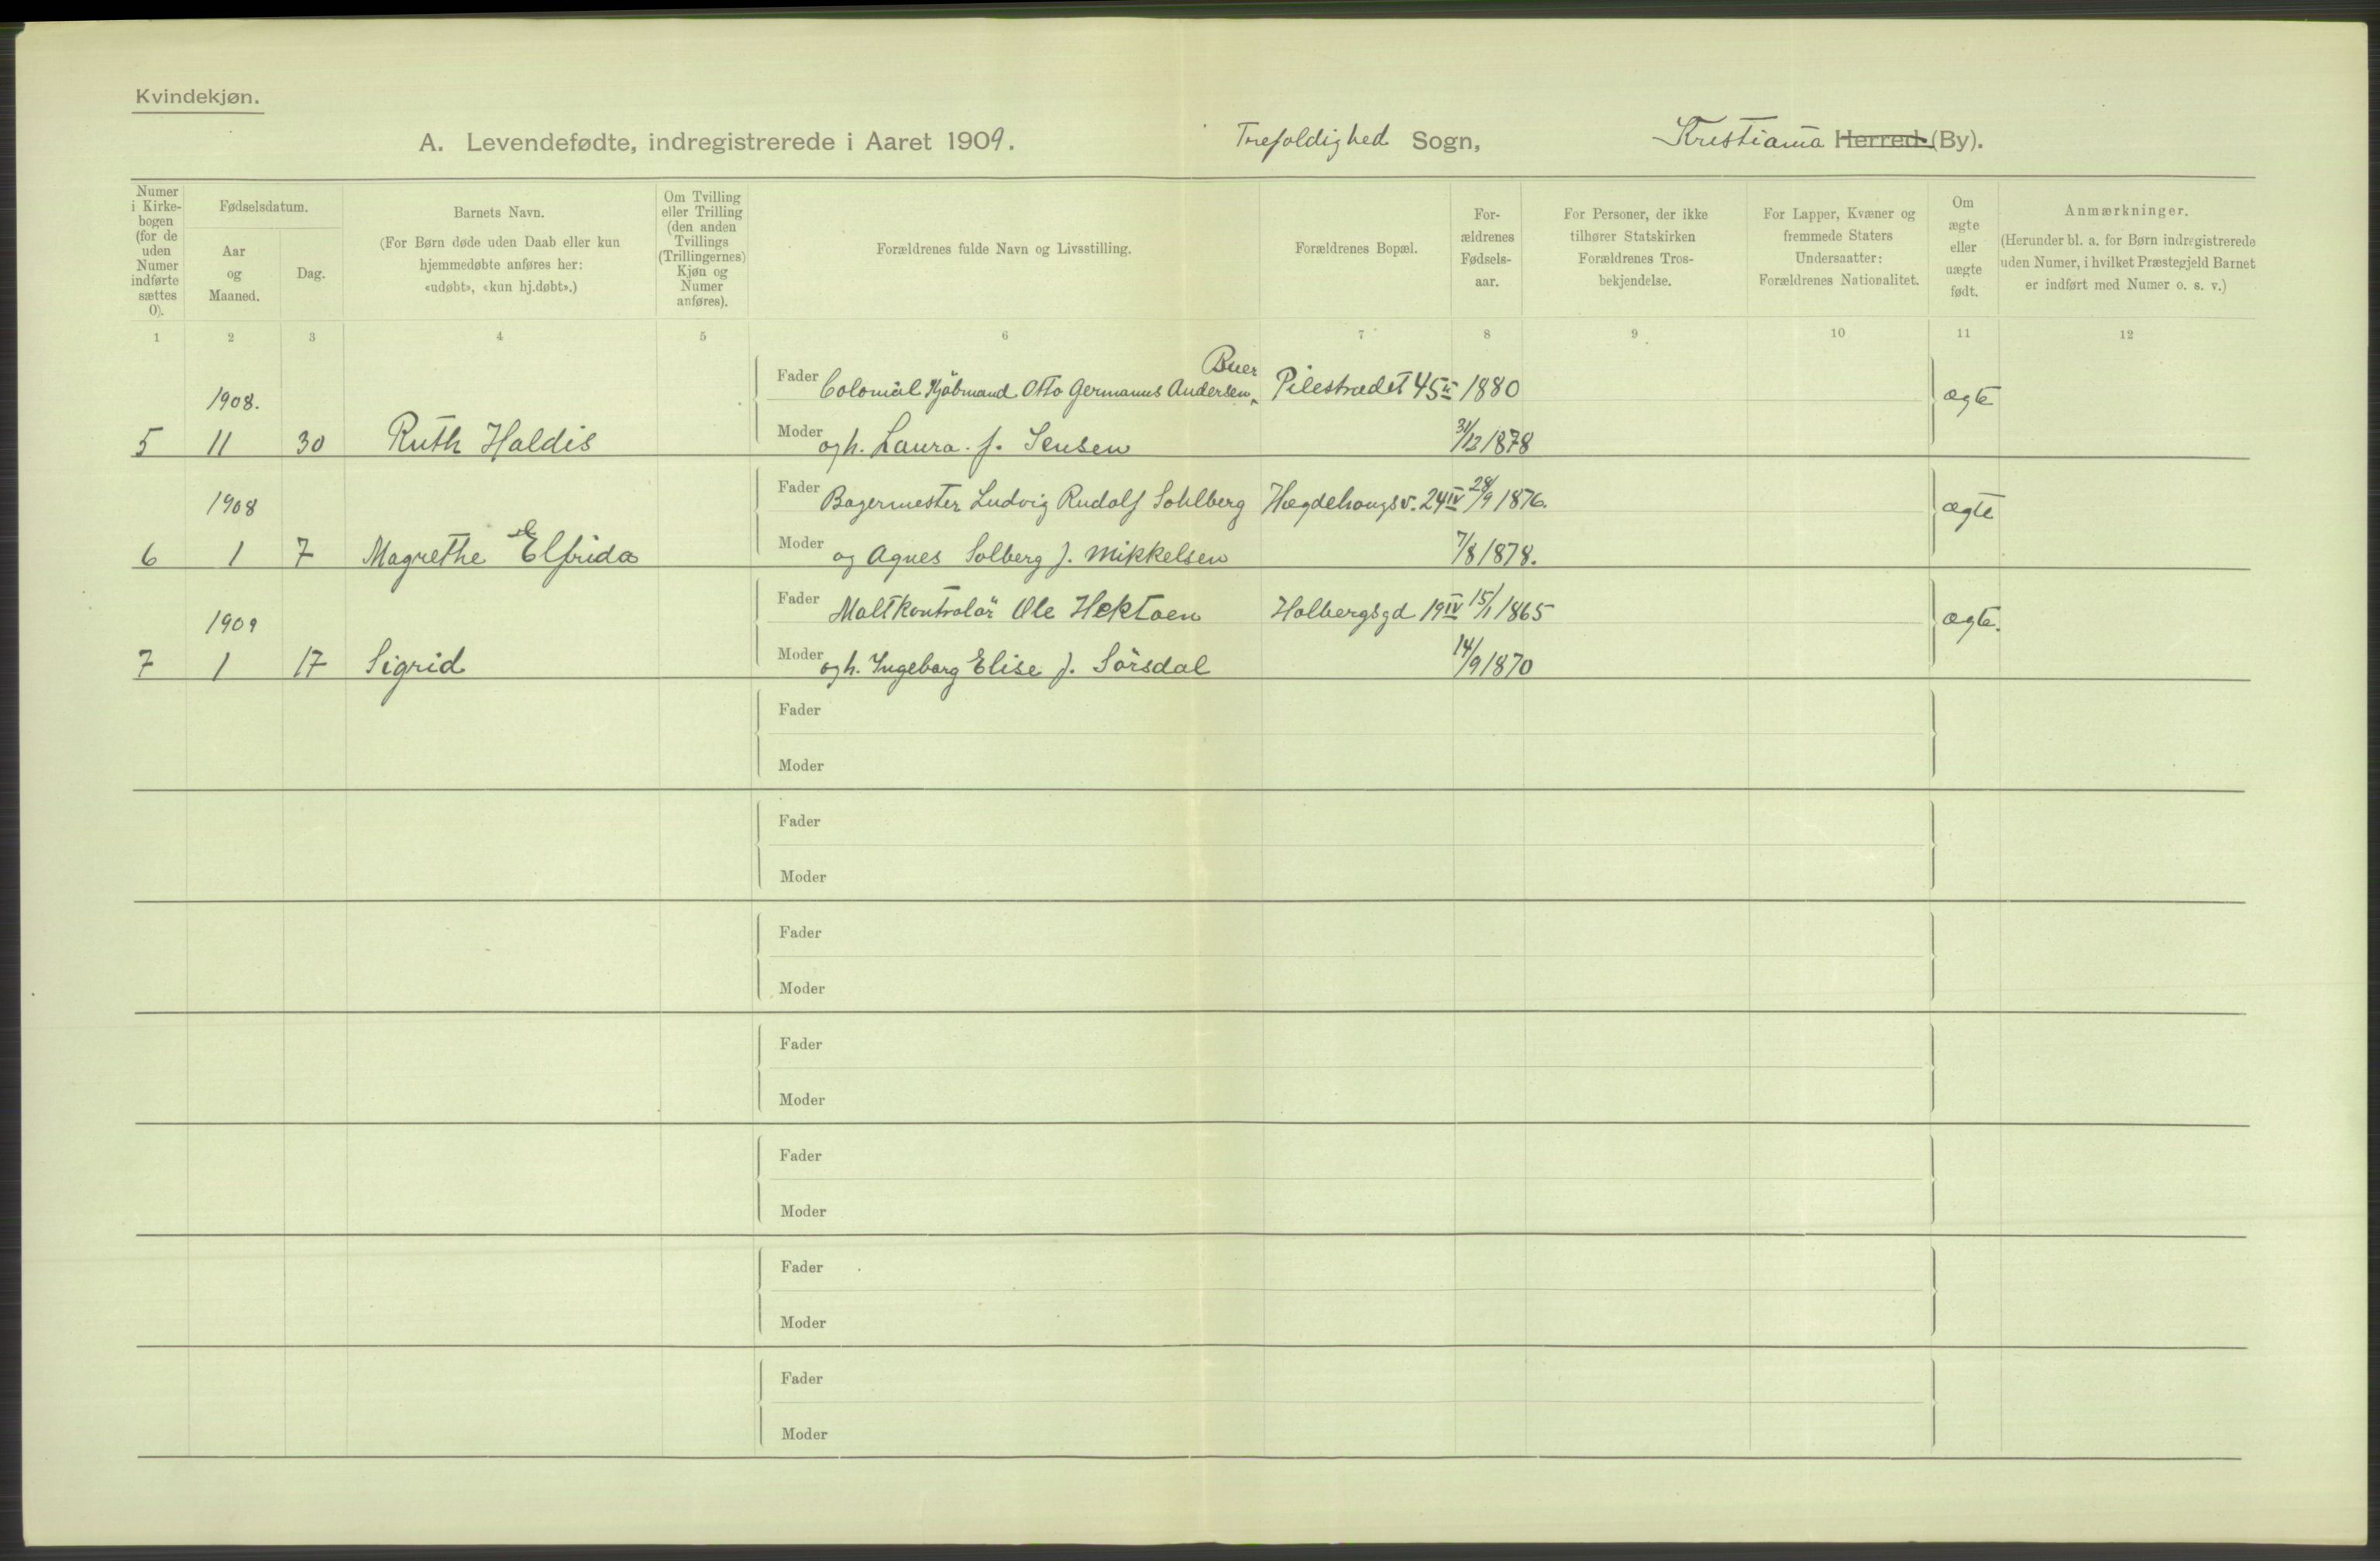 Kvindekjøn.
A. Levendefødte, indregistrerede i Aaret 1909. Trefoldighed Sogn, Kristiania Herred (By).
Numer i Kirke-bogen (for de uden Numer indførte sættes 0).
Fødselsdatum.
Aar og Maaned.
Dag.
Barnets Navn.
(For Børn døde uden Daab eller kun hjemmedøbte anføres her: «udøbt», «kun hj.døbt».)
Om Tvilling eller Trilling (den anden Tvillings (Trillingernes) Kjøn og Numer anføres).
Forældrenes fulde Navn og Livsstilling.
Forældrenes Bopæl.
For-ældrenes Fødsels-aar.
For Personer, der ikke tilhører Statskirken Forældrenes Tros-bekjendelse.
For Lapper, Kvæner og fremmede Staters Undersaatter: Forældrenes Nationalitet.
Om ægte eller uægte født.
Anmærkninger.
(Herunder bl. a. for Børn indregistrerede uden Numer, i hvilket Præstegjeld Barnet er indført med Numer o. s. v.)
1 2 3 4 5 6 7 8 9 10 11 12
Buer
1908. Fader Colonial Kjöbmand Otto Germanus Andersen, Pilestrædet 45 II 1880 ægte
5 11 30 Ruth Haldis Moder og h. Laura f. Jensen 31/12 1878
1908 Fader Bagermester Ludvig Rudolf Sohlberg Hægdehaugsv. 24 IV 28/9 1876. ægte
6 1 7 Magrethe Elfrida Moder og Agnes Solberg f. Mikkelsen 7/8 1878.
1909 Fader Maltkontrolör Ole Hektoen Holbergsgd 19 IV 15/1 1865 ægte.
7 1 17 Sigrid Moder og h. Ingeborg Elise f. Sörsdal 14/9 1870
Fader
Moder
Fader
Moder
Fader
Moder
Fader
Moder
Fader
Moder
Fader
Moder
Fader
Moder